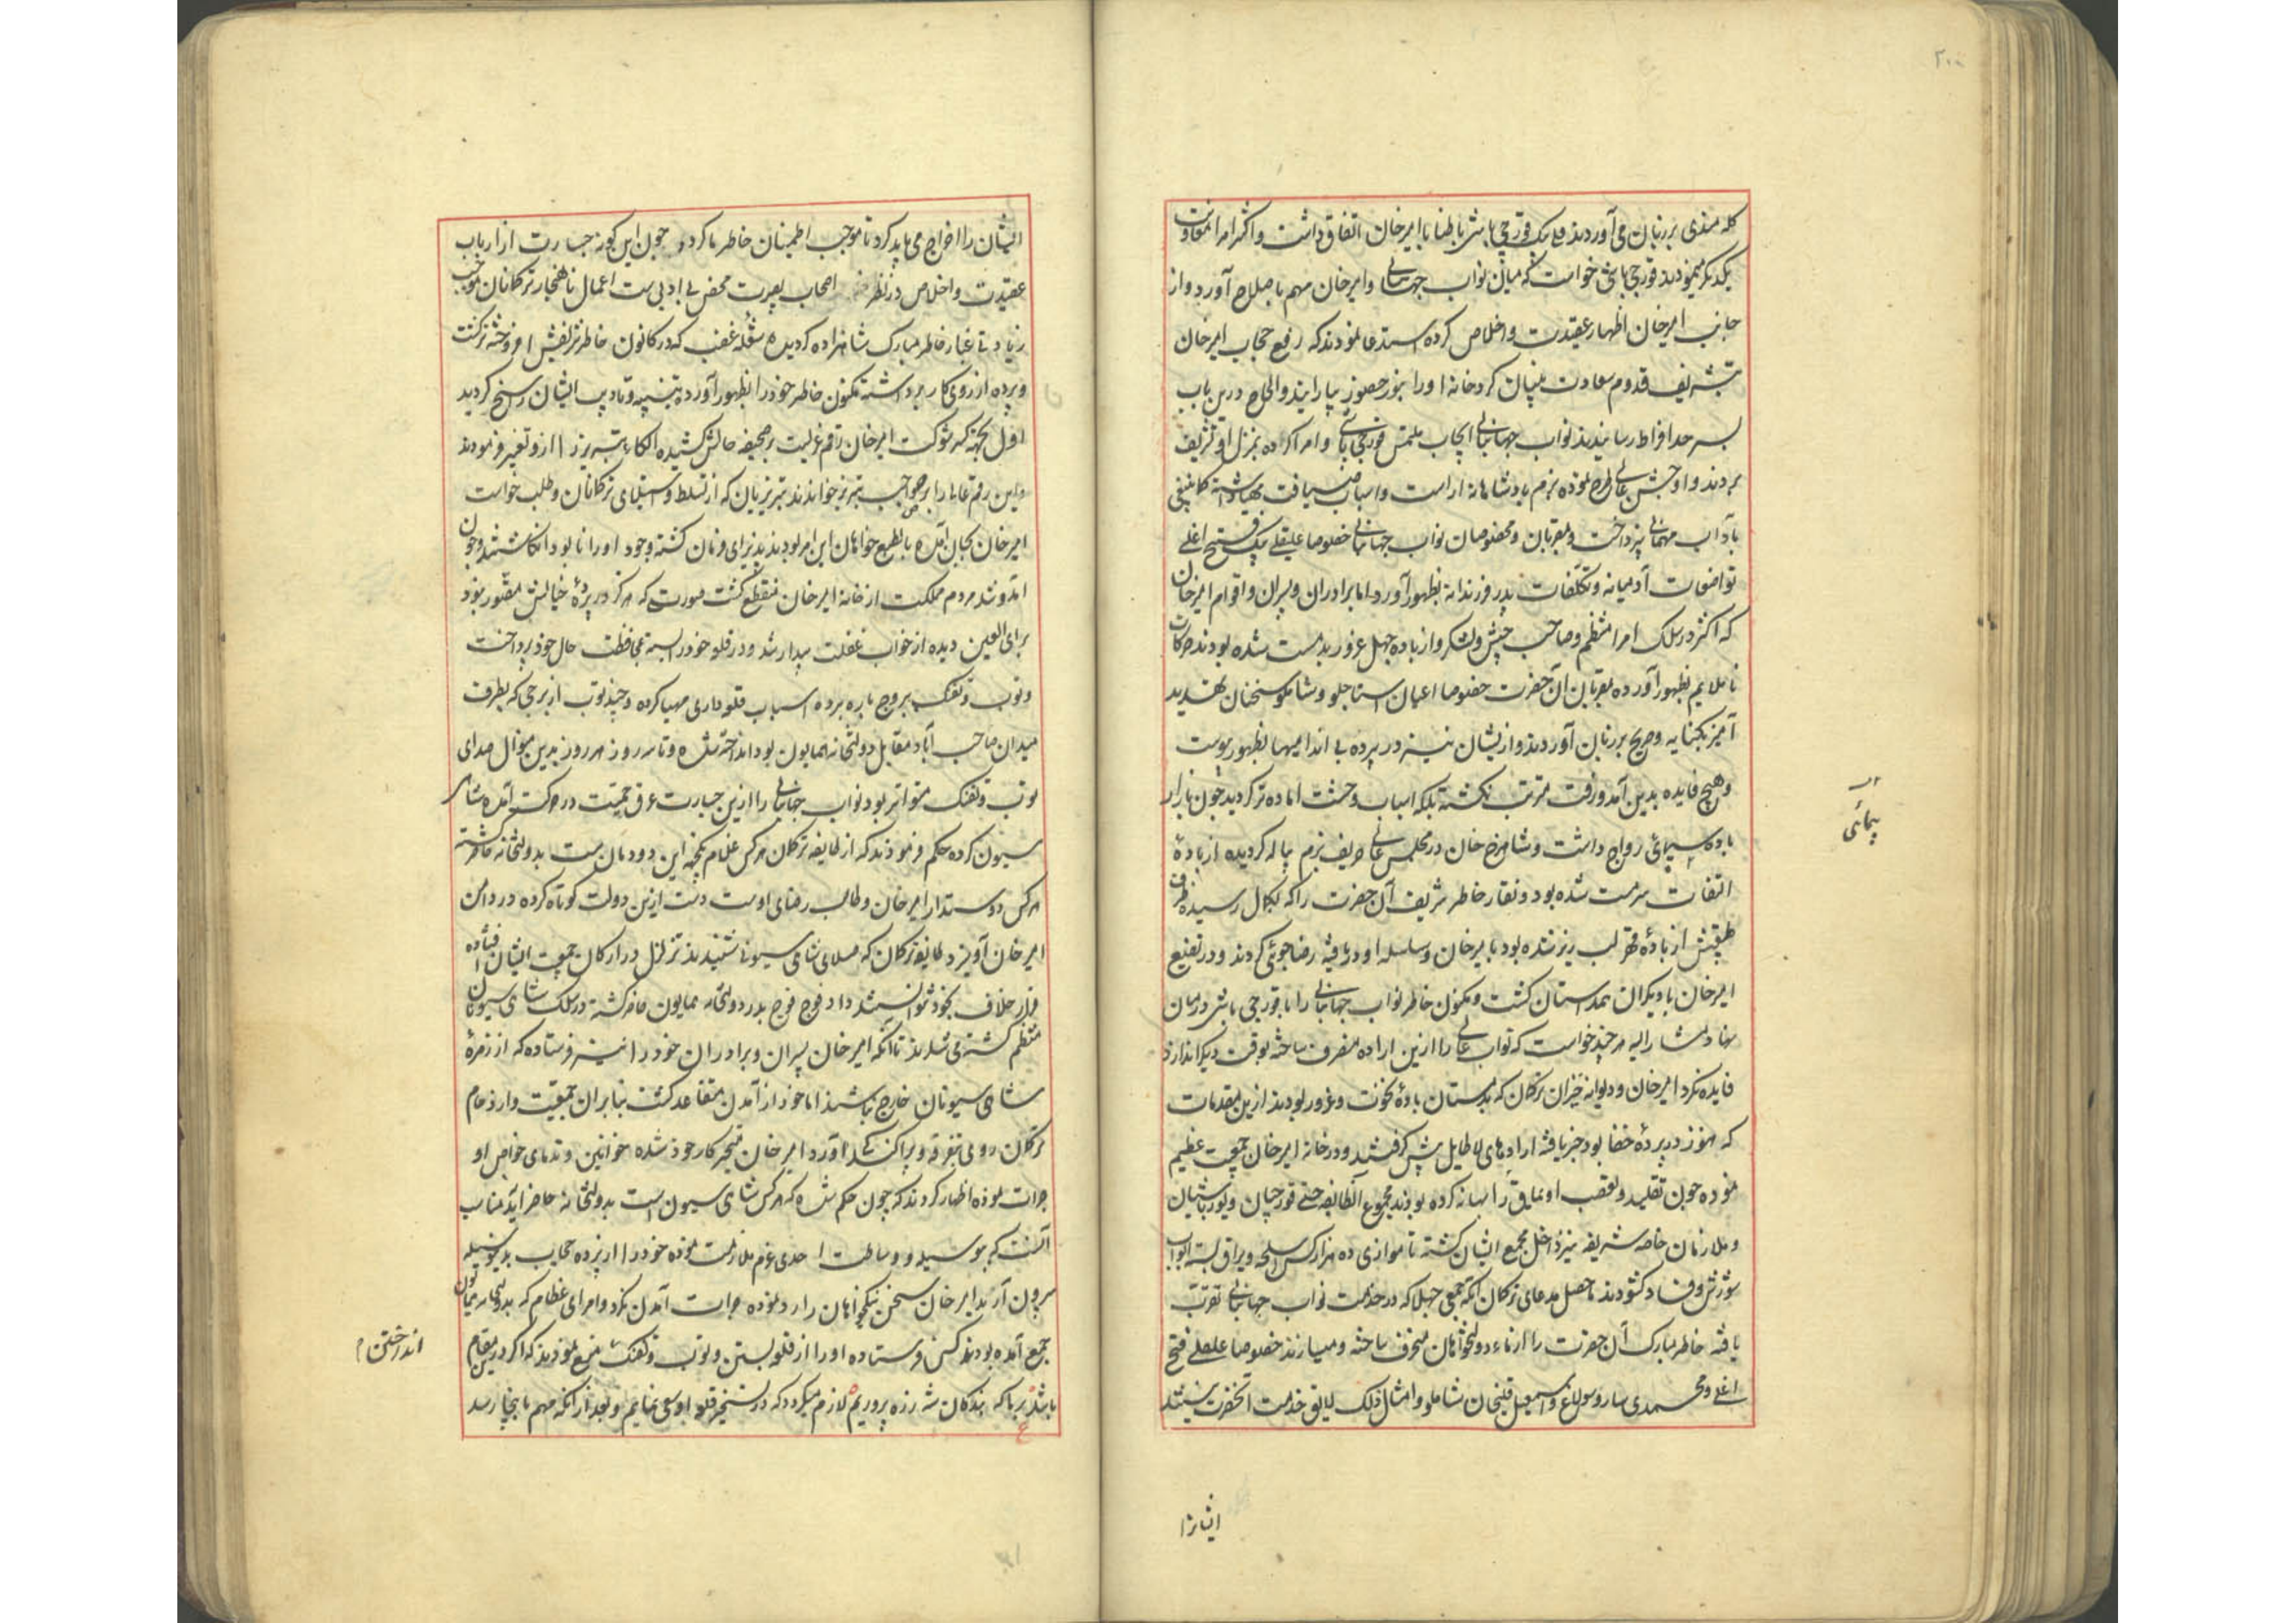 ۲۰۰
کله مندی بر زبان می آوردند قلی بیک قورچی باشی باطنا با امیرخان اتفاق داشت و اکثر امرا معاونت
یکدیگر مینمودند قورچی باشی خواست که میان نواب جهانبانی و امیرخان مهم باصلاح آورد و از
جانب امیرخان اظهار عقیدت و اخلاص کرده استدعا نمودند که رفع حجاب امیرخان
بتشریف قدوم سعادت بنیان کرد خانه او را بنور حضور بیارایند و الحاح درین باب
بسرحد افراط رسانیدند نواب جهانبانی ایجاب ملتمس قورچی باشی و امرا کرده بمنزل او تشریف
بردند و او جشن عالی طرح نموده بزم پادشاهانه آراست و اسباب ضیافت مهیا داشته کما ینبغی
بآداب مهمانی پرداخت و بمقربان و مخصوصان نواب جهانبانی خصوصا علیقلی بیک فتح اغلی
تواضعات آدمیانه و تکلفات پدر فرزندانه بظهور آورد اما برادران و پسران و اقوام امیرخان
که اکثر در سلک امرا منتظم و صاحب جیش و لشکر و از باده جهل و غرور بدمست شده بودند حرکات
ناملایم بظهور آورده بمقربان آن حضرت خصوصا اعیان استاجلو و شاملو سخنان تهدید
آمیز بکنایه و صریح بر زبان آوردند و از ایشان نیز در پرده بی اندامیها بظهور پیوست
و هیچ فایده بدین آمد و رفت مترتب نکشته بلکه اسباب وحشت آماده تر کردید چون بازار
باده پیمائی رواج داشت و شاهرخ خان در مجلس عالی حریف بزم پیاله کردیده از بادهٔ
التفات سرمست شده بود و نقار خاطر شریف آن حضرت را که بکمال رسیده ظرف
طبیعتش از بادهٔ قهر لب ریز شده بود با امیرخان و سلسله او دریافته رضاجوئی کردند و در تضییع
امیرخان با دیکران همداستان کشت و مکنون خاطر نواب جهانبانی را با قورچی باشی در میان
نهاد مشار الیه هرچند خواست که نواب عالی را ازین اراده منصرف ساخته بوقت دیکر اندازد
فایده نکرد امیرخان و دیوانه خیزان ترکمان که بدمستان بادهٔ نخوت و غرور بودند ازین مقدمات
که هنوز در پردهٔ خفا بود خبر یافته ارادهای لاطایل پیش کرفتند و در خانهٔ امیرخان جمعیت عظیم
نموده چون تقلید و تعصب اویماقی را بهانه کرده بودند مجموع آن طایفه حتی قورچیان و یوزباشیان
و ملازمان خاصه شریفه نیز داخل مجمع ایشان کشته تا موازی ده هزار کس اسلحه و یراق بسته ابواب
شورش و فساد کشودند ماحصل مدعای ترکمان آنکه جمعی جهلا که در خدمت نواب جهانبانی تقرب
یافته خاطر مبارک آن حضرت را از ماء دولتخواهان منحرف ساخته و میسازند خصوصا علیقلی فتح
اغلی و محمدی ساروسولاغ و اسمعیل قلیخان شاملو و امثال ذلک لایق خدمت آنحضرت نیستند
پیمائی
ایشانرا
ایشان را اخراج می باید کرد تا موجب اطمینان خاطر ما کردد چون این کونه جسارت از ارباب
عقیدت و اخلاص در نظر اصحاب بصیرت محض بی ادبی ست اعمال ناهنجار ترکمانان موجب
زیادتی غبار خاطر مبارک شاهزاده کردیده شعله غضب که در کانون خاطر شریفش افروخته تر کشت
و پرده از روی کار برداشته مکنون خاطر خود را بظهور آورده تنبیه و تادیب ایشان رسخ کردید
اول بجهة کسر شوکت امیرخان رقم عزلت بر صحیفه حالش کشیده الکاء تبریز را ازو تغییر فرمودند
و این رقم عالی را بر صواحب تبریز خواندند تبریزیان که از تسلط و استیلای ترکمانان و طلب خواست
امیرخان بجان آمده بالطبع خواهان این امر بودند پذیرای فرمان کشته وجود او را نابود انکاشتند و چون
آمد و شد مردم مملکت از خانه امیرخان منقطع کشت صورتی که هرکز در پردهٔ خیالش متصور نبود
برای العین دیده از خواب غفلت بیدار شد و در قلعه خود را بسته بمحافظت حال خود پرداخت
و توپ و تفنک ببروج باره برده اسباب قلعه داری مهیا کرده و چند توپ از برجی که بطرف
میدان صاحب آباد مقابل دولتخانه همایون بود انداخته شده و تا سه روز هر روز بدین منوال صدای
توپ و تفنک متواتر بود نواب جهانبانی را ازین جسارت عرق حمیت در حرکت آمده شاهی
سیون کرده حکم فرمودند که از طایفه ترکمان هر کس غلام یکجهة این دودمان ست بدولتخانه حاضر شده
هر کس دوستدار امیرخان و طالب رضای اوست دست ازین دولت کوتاه کرده در دامن
امیرخان آویزد طایفه ترکمان که صلای شاهی سیونی شنیدند تزلزل در ارکان جمعیت ایشان افتاده
قرار خلاف بخود نتوانستند داد فوج فوج بدر دولتخانه همایون حاضر کشته در سلک شاهی سیونان
منتظم کشته می شدند تا آنکه امیرخان پسران و برادران خود را نیز فرستاده که از زمرهٔ
شاهی سیونان خارج نباشند اما خود از آمدن متقاعد کشت بنابران جمعیت و ازدحام
ترکمان روی بتفرقه و پراکندکی آورد امیرخان متحیر کار خود شده خوانین و ندمای خواص او
جرات نموده اظهار کردند که چون حکم شده که هر کس شاهی سیون است بدولتخانه حاضر آید مناسب
آنست که بیوسیله و وساطت احدی عزم ملازمت نموده خود را از پرده حجاب بدین وسیله
بیرون آرید امیرخان سخن نیکخواهان را رد نموده جرات آمدن نکرد و امرای عظام که بدولتخانه همایون
جمع آمده بودند کس فرستاده او را از قلعه بستن و توپ و تفنک منع نمودند که اکر درین مقام
باشد بر ما که بندکان شه رزه پروریم لازم میکردد که در تسخیر قلعه او سعی نمایم و بعد از آنکه مهم باینجا رسد
اندرختن